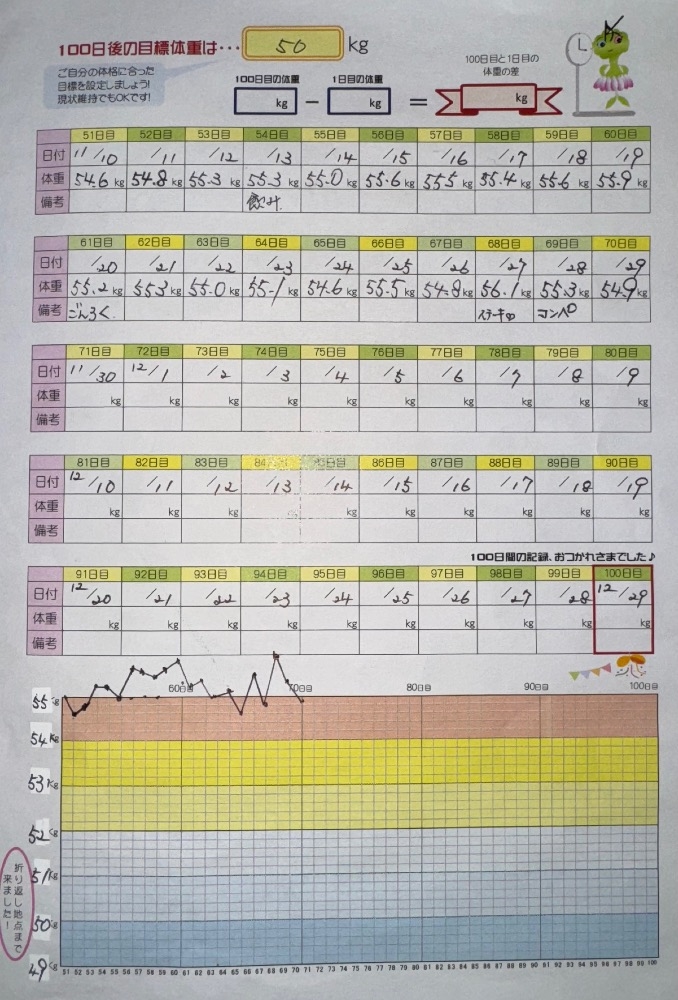 100日後の目標体重は・・・ 50 kg
ご自分の体格に合った
目標を設定しましょう!
現状維持でもOKです!
100日目の体重 1日目の体重
kg − kg =
100日目と1日目の
体重の差
kg
51日目 52日目 53日目 54日目 55日目 56日目 57日目 58日目 59日目 60日目
日付 11/10 /11 /12 /13 /14 /15 /16 /17 /18 /19
体重 54.6kg 54.8kg 55.3kg 55.3kg 55.0kg 55.6kg 55.5kg 55.4kg 55.6kg 55.9kg
備考 飲み
61日目 62日目 63日目 64日目 65日目 66日目 67日目 68日目 69日目 70日目
日付 /20 /21 /22 /23 /24 /25 /26 /27 /28 /29
体重 55.2kg 55.3kg 55.0kg 55.1kg 54.6kg 55.5kg 54.8kg 56.1kg 55.3kg 54.9kg
備考 ごんろく. ステーキ コンペ
71日目 72日目 73日目 74日目 75日目 76日目 77日目 78日目 79日目 80日目
日付 11/30 12/1 /2 /3 /4 /5 /6 /7 /8 /9
体重 kg kg kg kg kg kg kg kg kg kg
備考
81日目 82日目 83日目 84日目 85日目 86日目 87日目 88日目 89日目 90日目
日付 12/10 /11 /12 /13 /14 /15 /16 /17 /18 /19
体重 kg kg kg kg kg kg kg kg kg
備考
100日間の記録、おつかれさまでした♪
91日目 92日目 93日目 94日目 95日目 96日目 97日目 98日目 99日目 100日目
日付 12/20 /21 /22 /23 /24 /25 /26 /27 /28 12/29
体重 kg kg kg kg kg kg kg kg kg kg
備考
60日目 70日目 80日目 90日目 100日目
55kg
54kg
53kg
52kg
51kg
50kg
49kg
折り返し地点まで
来ました!
51 52 53 54 55 56 57 58 59 60 61 62 63 64 65 66 67 68 69 70 71 72 73 74 75 76 77 78 79 80 81 82 83 84 85 86 87 88 89 90 91 92 93 94 95 96 97 98 99 100